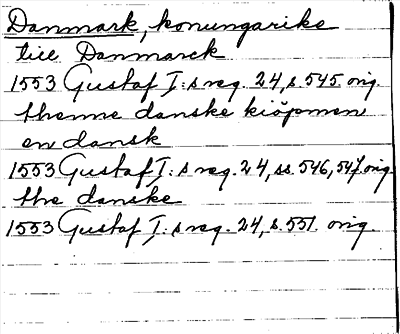 Danmark, konungarike
till Danmarck
1553 Gustaf I:s reg. 24, s. 545. orig.
thenne danske kiöpmen
en dansk
1553 Gustaf I:s reg. 24, ss. 546, 547. orig.
the danske
1553 Gustaf I:s reg. 24, s. 551. orig.